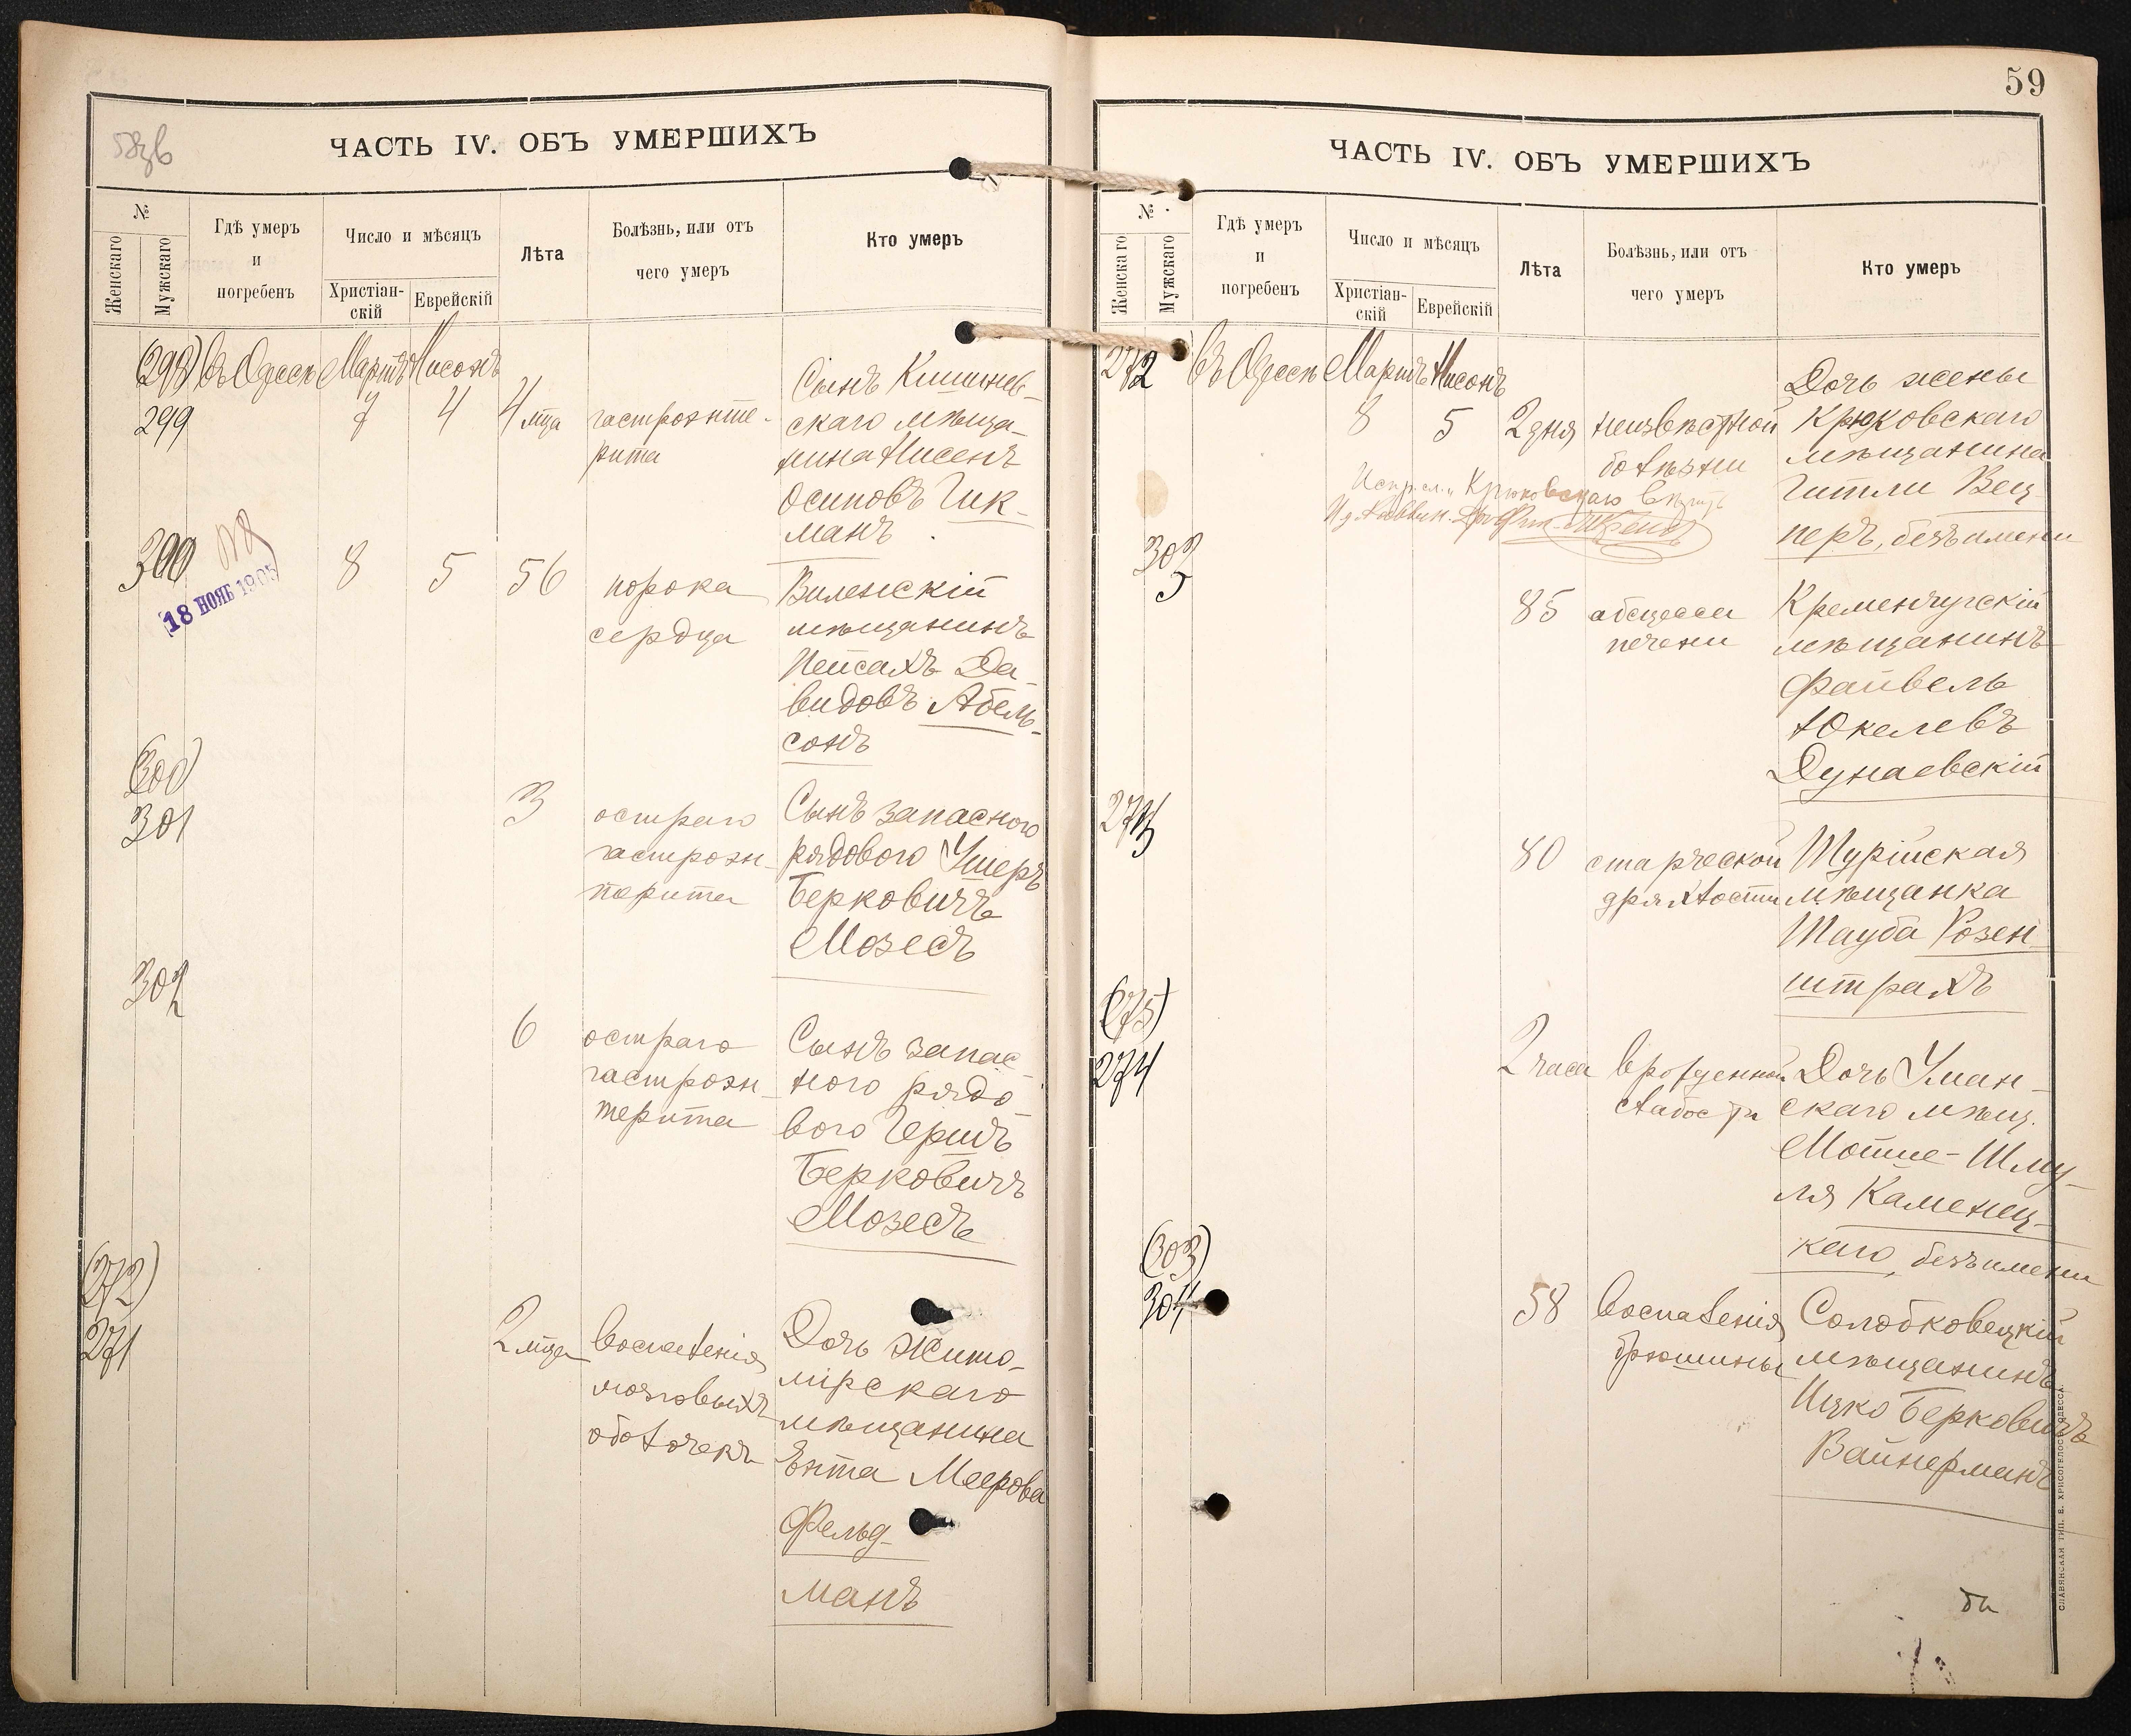 58об
ЧАСТЬ IV. ОБЪ УМЕРШИХЪ
№
Женскаго
Мужскаго
Гдѣ умеръ
и
погребенъ
Число и мѣсяцъ
Христіан-
скій
Еврейскій
Лѣта
Болѣзнь, или отъ
чего умеръ
Кто умеръ
(298) въ Одессѣ Мартъ Нисонъ
299 7 4 4 мца гастроэнте-
рита
Сынъ Кишинев-
скаго мѣща-
нина Нисенъ
Осиповъ Гик-
манъ
300 8 5 56 порока
сердца
18 НОЯБ 1905
Виленскій
мѣщанинъ
Пейсахъ Да-
видовъ Абель-
сонъ
(300)
301 3 остраго
гастроэн-
терита
Сынъ запасного
рядового Ушеръ
Берковичъ
Мозесъ
302 6 остраго
гастроэн-
терита
Сынъ запас-
ного рядо-
вого Гершъ
Берковичъ
Мозесъ
(272)
271 2 мца воспаленія
мозговыхъ
оболочекъ
Дочь Жито-
мірскаго
мѣщанина
Ента Меерова
Фельд-
манъ
59
ЧАСТЬ IV. ОБЪ УМЕРШИХЪ
№
Женскаго
Мужскаго
Гдѣ умеръ
и
погребенъ
Число и мѣсяцъ
Христіан-
скій
Еврейскій
Лѣта
Болѣзнь, или отъ
чего умеръ
Кто умеръ
272 въ Одессѣ Мартъ Нисонъ
8 5 2 дня неизвѣстной
болѣзни
Дочь жены
Крюковскаго
мѣщанина
Гитли Вец-
перъ, безъ имени
Испр. сл. „Крюковскаго вѣрить
303 85 абсцесса
печени
Кременчугскій
мѣщанинъ
Файвель
Юкелевъ
Дунаевскій
273 80 старческой
дряхлости
Турійская
мѣщанка
Тауба Розен-
штрахъ
(275)
274 2 часа врожденной
слабости
Дочь Уман-
скаго мѣщ.
Мошие-Шму-
ля Каменец-
каго, безъ имени
(303)
304 58 воспаленія
брюшины
Солобковецкій
мѣщанинъ
Ицко Берковичъ
Вайнерманъ
СЛАВЯНСКАЯ ТИП. Е. ХРИСОГЕЛОСЪ ОДЕССА.